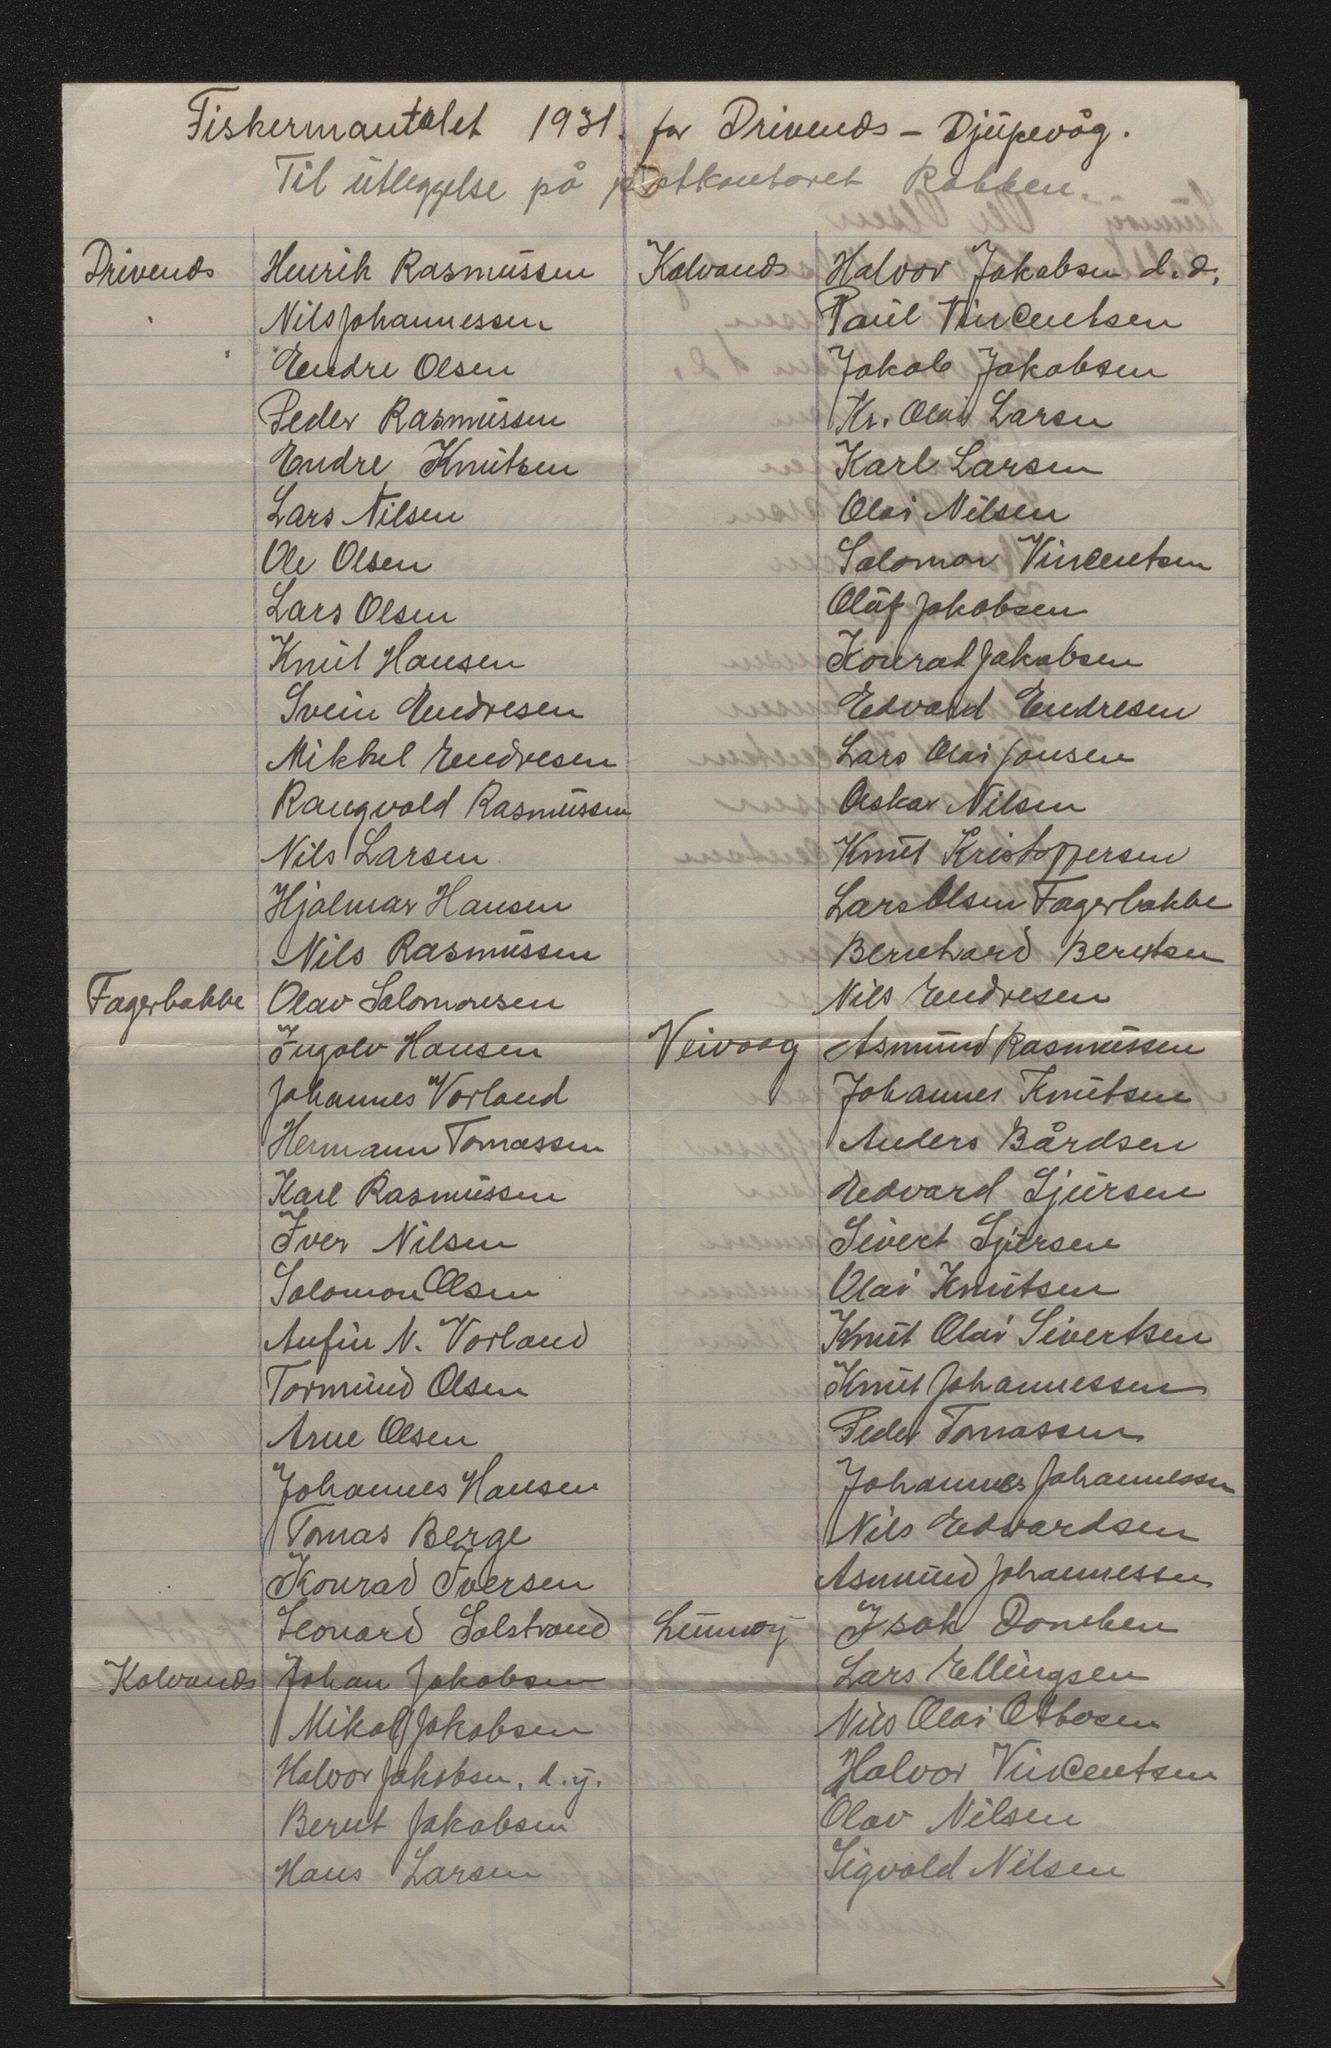 Fiskermantalet 1931. for Drivenes - Djupevåg.
Til utleggelse på postkontoret Rabben.
Drivenes Henrik Rasmussen
Nils Johannessen
Endre Olsen
Peder Rasmussen
Endre Knutsen
Lars Nilsen
Ole Olsen
Lars Olsen
Knut Hansen
Svein Endresen
Mikkel Endresen
Rangvald Rasmussen
Nils Larsen
Hjalmar Hansen
Nils Rasmussen
Fagerbakke Olav Salomonsen
Ingolv Hansen
Johannes Vorland
Hermann Tomassen
Karl Rasmussen
Iver Nilsen
Solomon Olsen
Anfin N. Vorland
Tormund Olsen
Arne Olsen
Johannes Hansen
Tomas Berge
Konrad Iversen
Leonard Solstrand
Kalvanes Johan Jakobsen
Mikal Jakobsen
Halvor Jakobsen. d.y.
Bernt Jakobsen
Hans Larsen
Kalvanes Halvor Jakobsen d.e.
Paul Vincentsen
Jakob Jakobsen
Kr. Olai Larsen
Karl Larsen
Olai Nilsen
Salomon Vincentsen
Oluf Jakobsen
Konrad Jakobsen
Edvard Endresen
Lars Olai Jonsen
Oskar Nilsen
Knut Kristoffersen
Lars Olsen Fagerbakke
Bernhard Berntsen
Nils Endresen
Veivaag Asmund Rasmussen
Johannes Knutsen
Anders Bårdsen
Edvard Sjursen
Sivert Sjursen
Olai Knutsen
Knut Olai Sivertsen
Knut Johannessen
Peder Tomassen
Johannes Johannessen
Nils Edvardsen
Asmund Johannessen
Lunnøy Isak
Lars Ellingsen
Nils Olai
Halvor Vincentsen
Olav Nilsen
Sigvald Nilsen